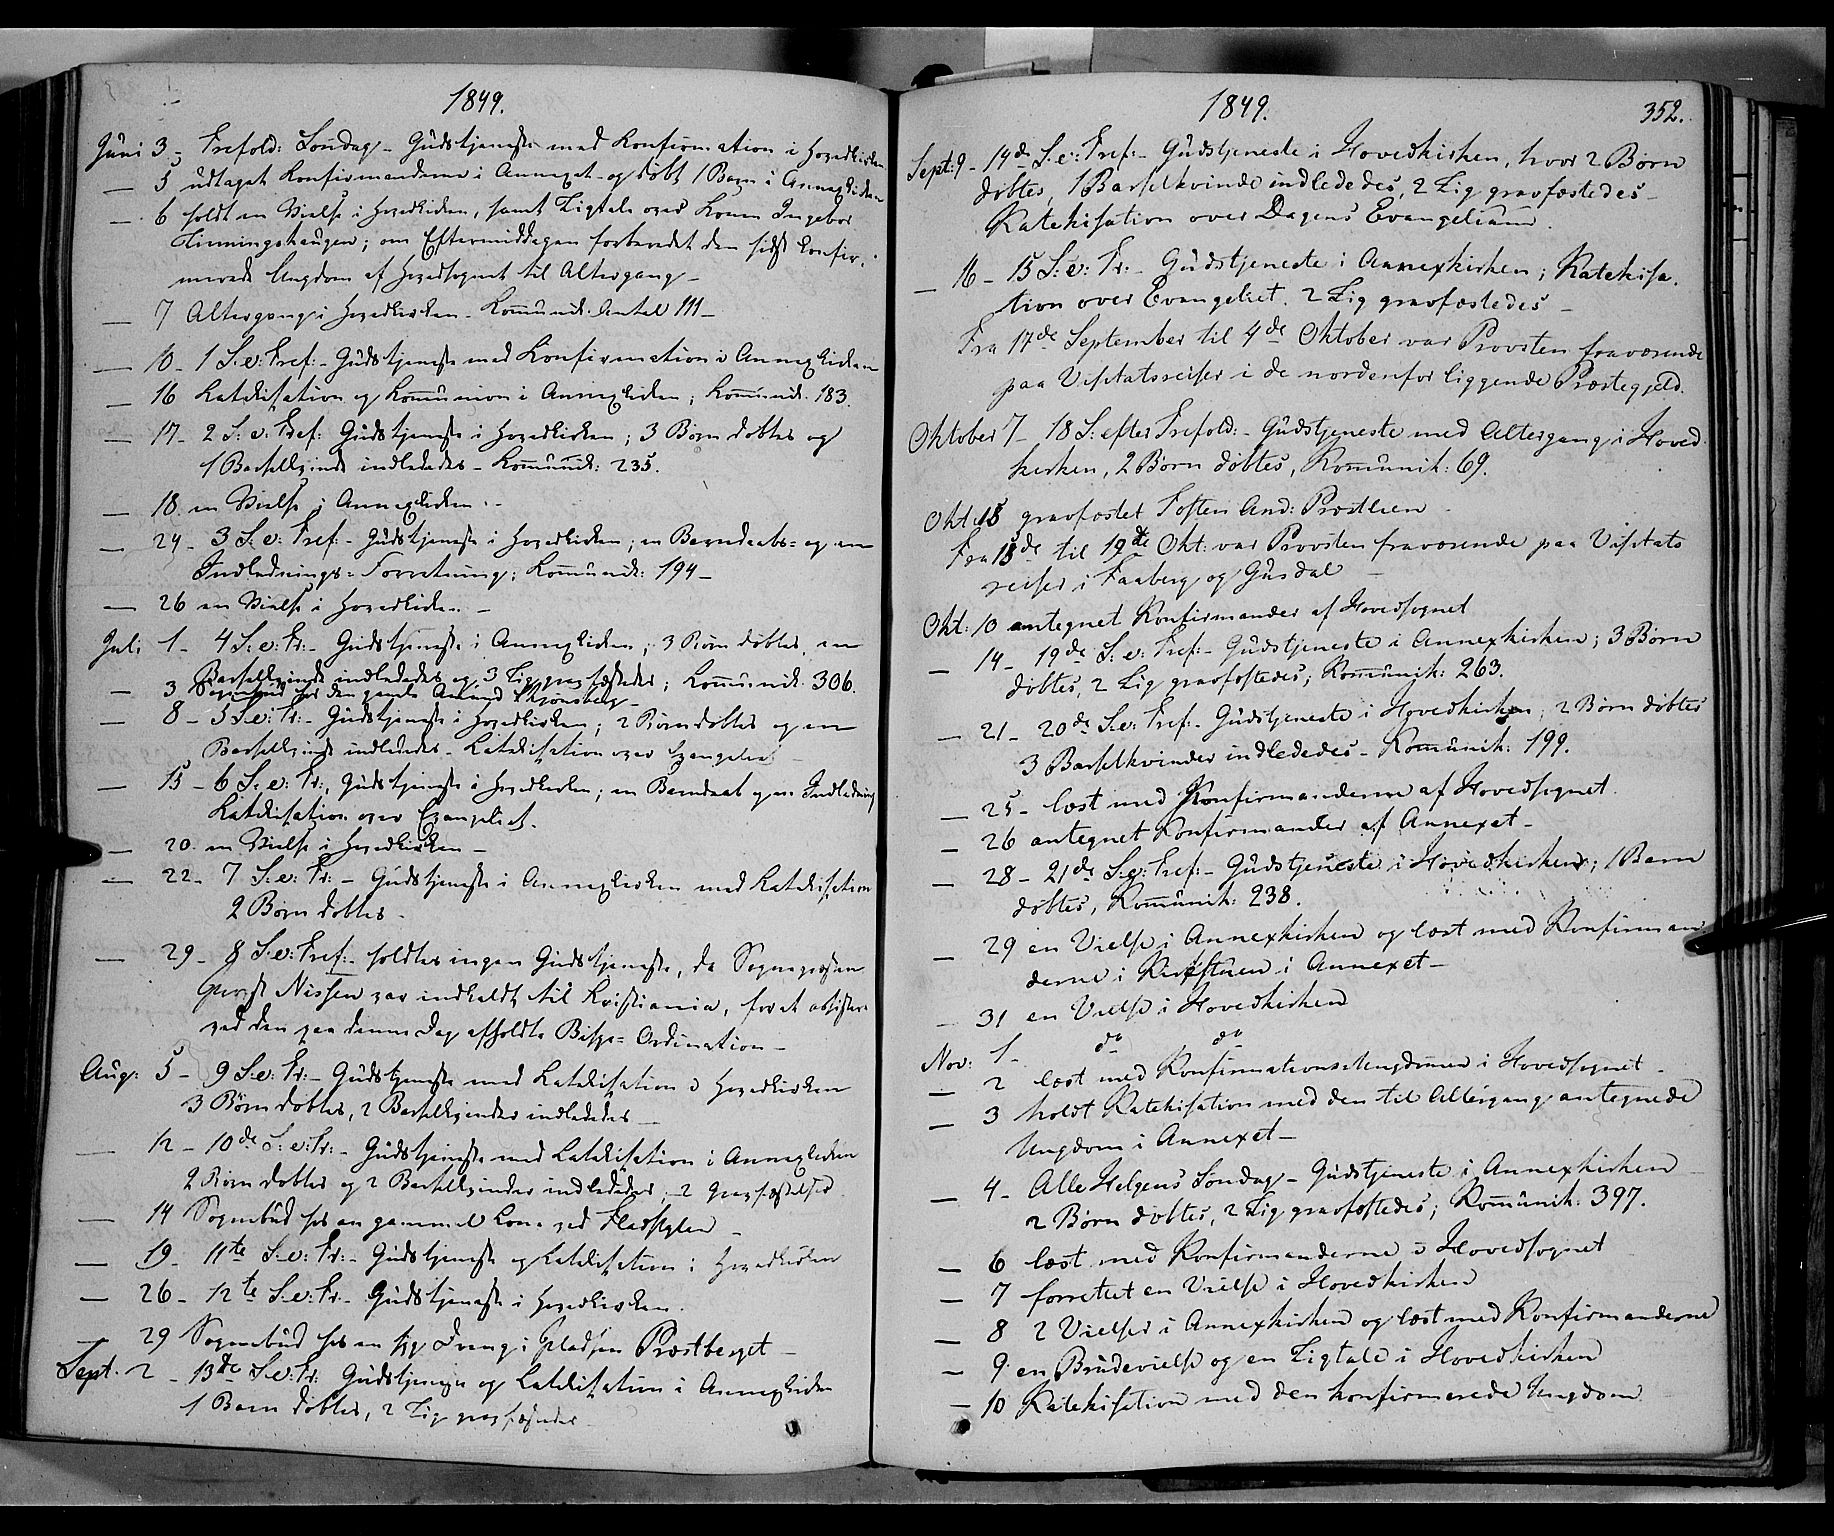 1849.
Juni 3 - Trefold: Søndag - Gudstjeneste med Konfirmation i Hovedkirken
— 5 udtaget Konfirmanderne i Annexet og døbt 1 Barn i Annexkirken
— 6 holdt en Vielse i Hovedkirken, samt Ligtale over Konen Ingebor
Tinningshaugen; om Eftermiddagen forberedet den sidst konfir-
merede Ungdom af Hovedsognet til Altergang -
— 7 Altergang i Hovedkirken - Kommunik. Antal 111 -
— 10 - 1 S: e: Tref: - Gudstjeneste med Konfirmation i Annexkirken
— 16 Katekisation og Kommunion i Annexkirken; Kommunik. 183.
— 17 - 2 S: e: Tref: Gudstjeneste i Hovedkirken; 3 Børn døbtes og
1 Barselkvinde indlededes - Kommunik: 235.
— 18. en Vielse i Annexkirken. -
— 24 - 3 S: e: Tref: - Gudstjeneste i Hovedkirken; en Barndaabs- og en
Indlednings-Forretning; Kommunik: 194 -
— 26 en Vielse i Hovedkirken -
Juli 1 - 4 S: e: Tr: - Gudstjeneste i Annexkirken; 3 Børn døbtes, en
Barselkvinde indlededes og 3 Lig gravfæstedes; Kommunik. 306.
— 3 Sognebud hos den gamle Amund Skjønsberg -
— 8 - 5 S: e: Tr: - Gudstjeneste i Hovedkirken; 2 Børn døbtes og en
Barselkvinde indlededes - Katekisation over Evangeliet -
— 15 - 6 S: e: Tr:, Gudstjeneste i Hovedkirken; en Barndaab og en Indledning
Katekisation over Evangeliet.
— 20. en Vielse i Hovedkirken -
— 22 - 7 S: e: Tr: - Gudstjeneste i Annexkirken med Katekisation
2 Børn døbtes -
— 29 - 8 S: e: Tref: - holdtes ingen Gudstjeneste, da Sognepræsten
Provst Nissen var indkaldt til Kristiania, for at assistere
ved den paa denne Dag afholdte Bispe-Ordination -
Aug: 5 - 9 S: e: Tr: - Gudstjeneste med Katekisation i Hovedkirken
3 Børn døbtes, 2 Barselkvinder indlededes -
— 12 - 10de S: e: Tr: - Gudstjeneste med Katekisation i Annexkirken
2 Børn døbtes og 2 Barselkvinder indlededes, - 2 Gravfæstelser.
— 14 Sognebud hos en gammel Kone ved -
— 19 - 11te S: e: Tr: - Gudstjeneste og Katekisation i Hovedkirken
— 26 - 12te S: e: Tr: - Gudstjeneste i Hovedkirken.
— 29 Sognebud hos en syg Dreng i Pladsen Præstberget -
Sept. 2 - 13de S: e: Tr: Gudstjeneste og Katekisation i Annexkirken
1 Barn døbtes, 2 Lig gravfæstedes -
1849.
352.
Sept: 9 - 14de S: e: Tref: - Gudstjeneste i Hovedkirken, hvor 2 Børn
døbtes, 1 Barselkvinde indlededes, 2 Lig gravfæstedes -
Katekisation over Dagens Evangelium.
— 16 - 15 S: e: Tr: - Gudstjeneste i Annexkirken; Katekisa-
tion over Evangeliet. 2 Lig gravfæstedes -
Fra 17de September til 4de Oktober var Provsten fraværende
paa Visitatsreiser i de nordenfor liggende Præstegjeld.
Oktober 7 - 18 S: efter Trefold: - Gudstjeneste med Altergang i Hoved-
kirken, 2 Børn døbtes, Kommunik: 69.
Okt: 15 gravfæstet And: Præstlien -
Fra 15de til 19de Okt: var Provsten fraværende paa Visitats
reiser i Faaberg og Gusdal -
Okt: 10 antegnet Konfirmander af Hovedsognet
— 14 - 19de S: e: Tref: - Gudstjeneste i Annexkirken; 3 Børn
døbtes, 2 Lig gravfæstedes; Kommunik: 263.
— 21 - 20de S: e: Tref: - Gudstjeneste i Hovedkirken, 2 Børn døbtes
3 Barselkvinder indlededes - Kommunik: 199.
— 25 - læst med Konfirmanderne af Hovedsognet.
— 26 antegnet Konfirmander af Annexet -
— 28 - 21de S: e: Tref: - Gudstjeneste i Hovedkirken; 1 Barn
døbtes, Kommunik: 238.
— 29 en Vielse i Annexkirken og læst med Konfirman
derne i Kirkestuen i Annexet -
— 31 en Vielse i Hovedkirken
Nov: 1 - do do
— 2 læst med Konfirmationsungdommen i Hovedsognet -
— 3 holdt Katekisation med den til Altergang antegnede
Ungdom i Annexet -
— 4 - Alle Helgens Søndag - Gudstjeneste i Annexkirken
2 Børn døbtes, 2 Lig gravfæstedes; Kommunik: 397.
— 6 læst med Konfirmanderne i Hovedsognet
— 7 forrettet en Vielse i Hovedkirken
— 8 2 Vielser i Annexkirken og læst med Konfirmanderne
— 9 en Brudevielse og en Ligtale i Hovedkirken
— 10 Katekisation med den konfirmerede Ungdom